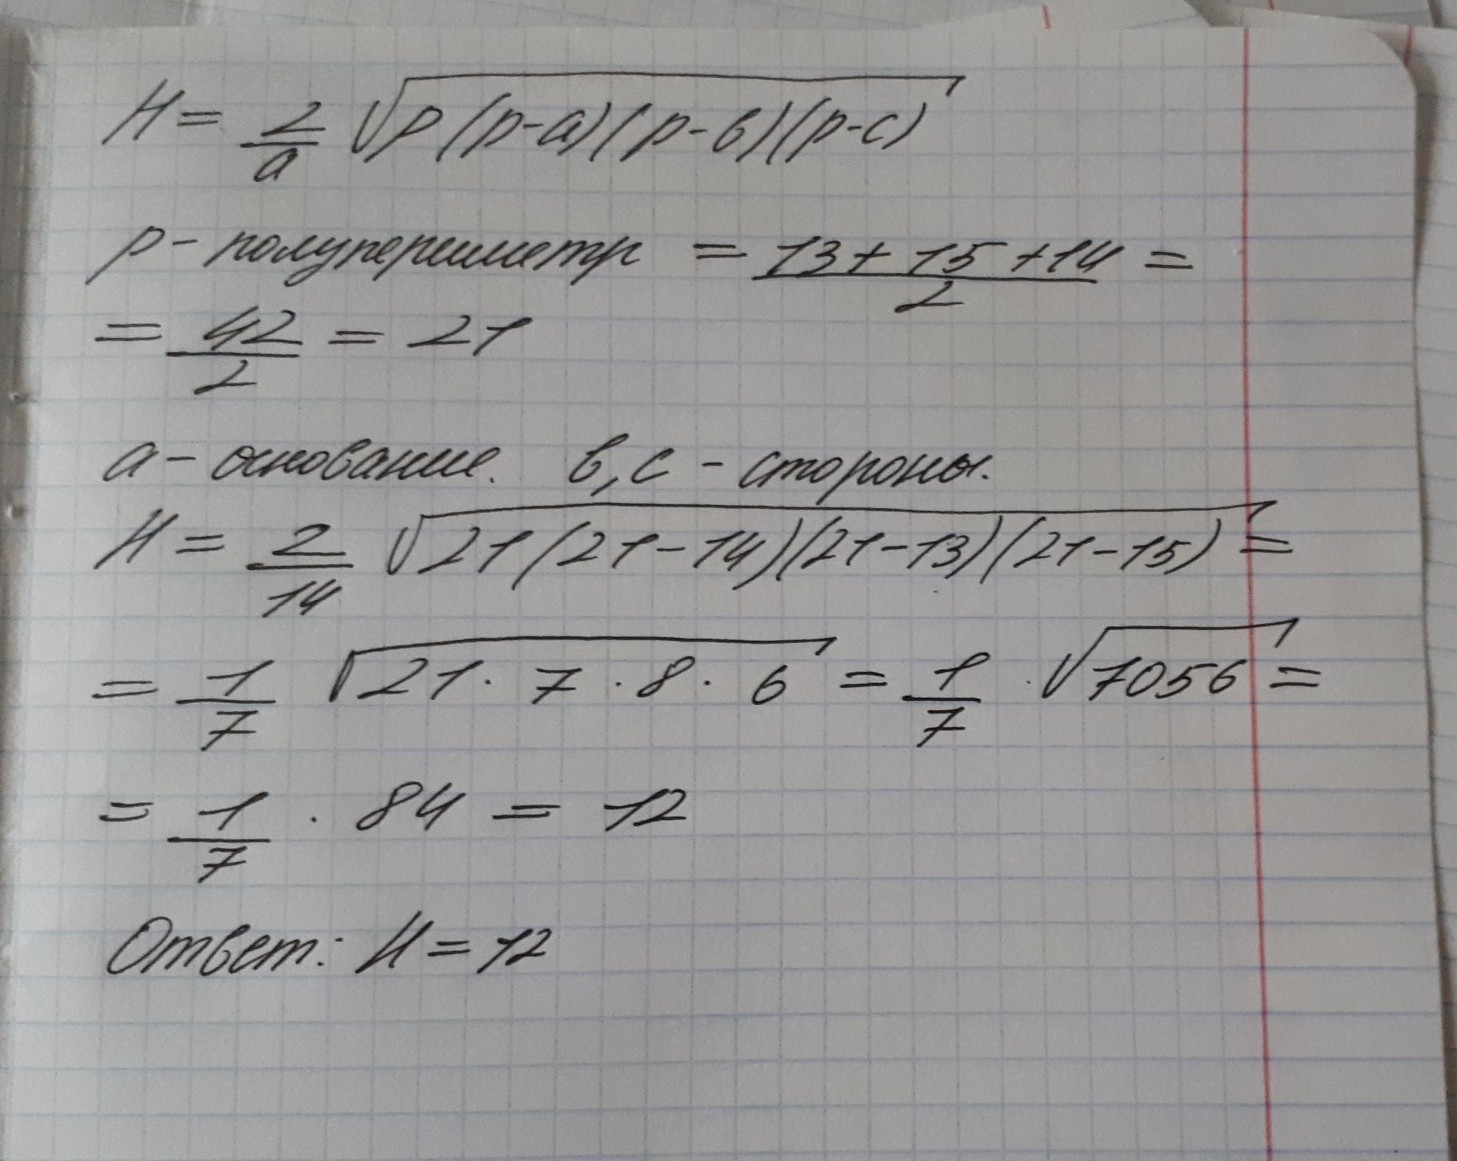 H = 2/a √p(p-a)(p-в)(p-c)
p - полупериметр = 13+15+14/2 =
= 42/2 = 21
a - основание. в, c - стороны.
H = 2/14 √21(21-14)(21-13)(21-15) =
= 1/7 √21·7·8·6 = 1/7 · √7056 =
= 1/7 · 84 = 12
Ответ: H = 12